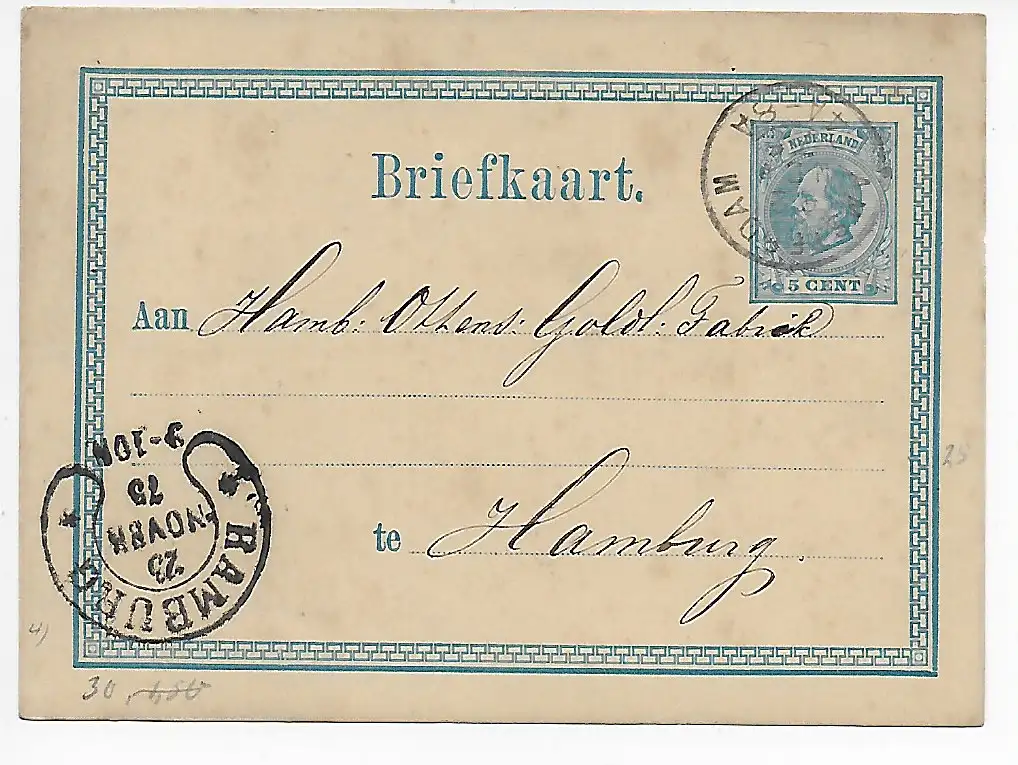 Briefkaart.
NEDERLAND
5 CENT
DAM
8A
Aan Hamb: Ottens: Goldl: Fabrik
te Hamburg.
HAMBURG
23
NOVBR
75
9-10N
28
4)
30,